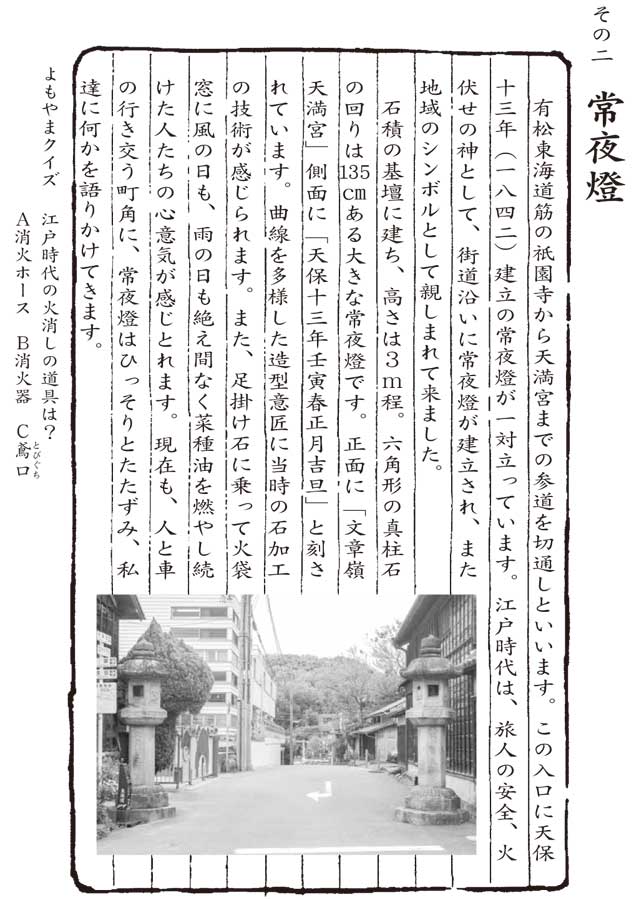 その二　常夜燈
有松東海道筋の祇園寺から天満宮までの参道を切通しといいます。この入口に天保
十三年（一八四二）建立の常夜燈が一対立っています。江戸時代は、旅人の安全、火
伏せの神として、街道沿いに常夜燈が建立され、また
地域のシンボルとして親しまれて来ました。
石積の基壇に建ち、高さは３ｍ程。六角形の真柱石
の回りは135㎝ある大きな常夜燈です。正面に「文章嶺
天満宮」側面に「天保十三年壬寅春正月吉旦」と刻さ
れています。曲線を多様した造型意匠に当時の石加工
の技術が感じられます。また、足掛け石に乗って火袋
窓に風の日も、雨の日も絶え間なく菜種油を燃やし続
けた人たちの心意気が感じとれます。現在も、人と車
の行き交う町角に、常夜燈はひっそりとたたずみ、私
達に何かを語りかけてきます。
よもやまクイズ　江戸時代の火消しの道具は？
Ａ消火ホース　Ｂ消火器　Ｃ鳶口
とびぐち